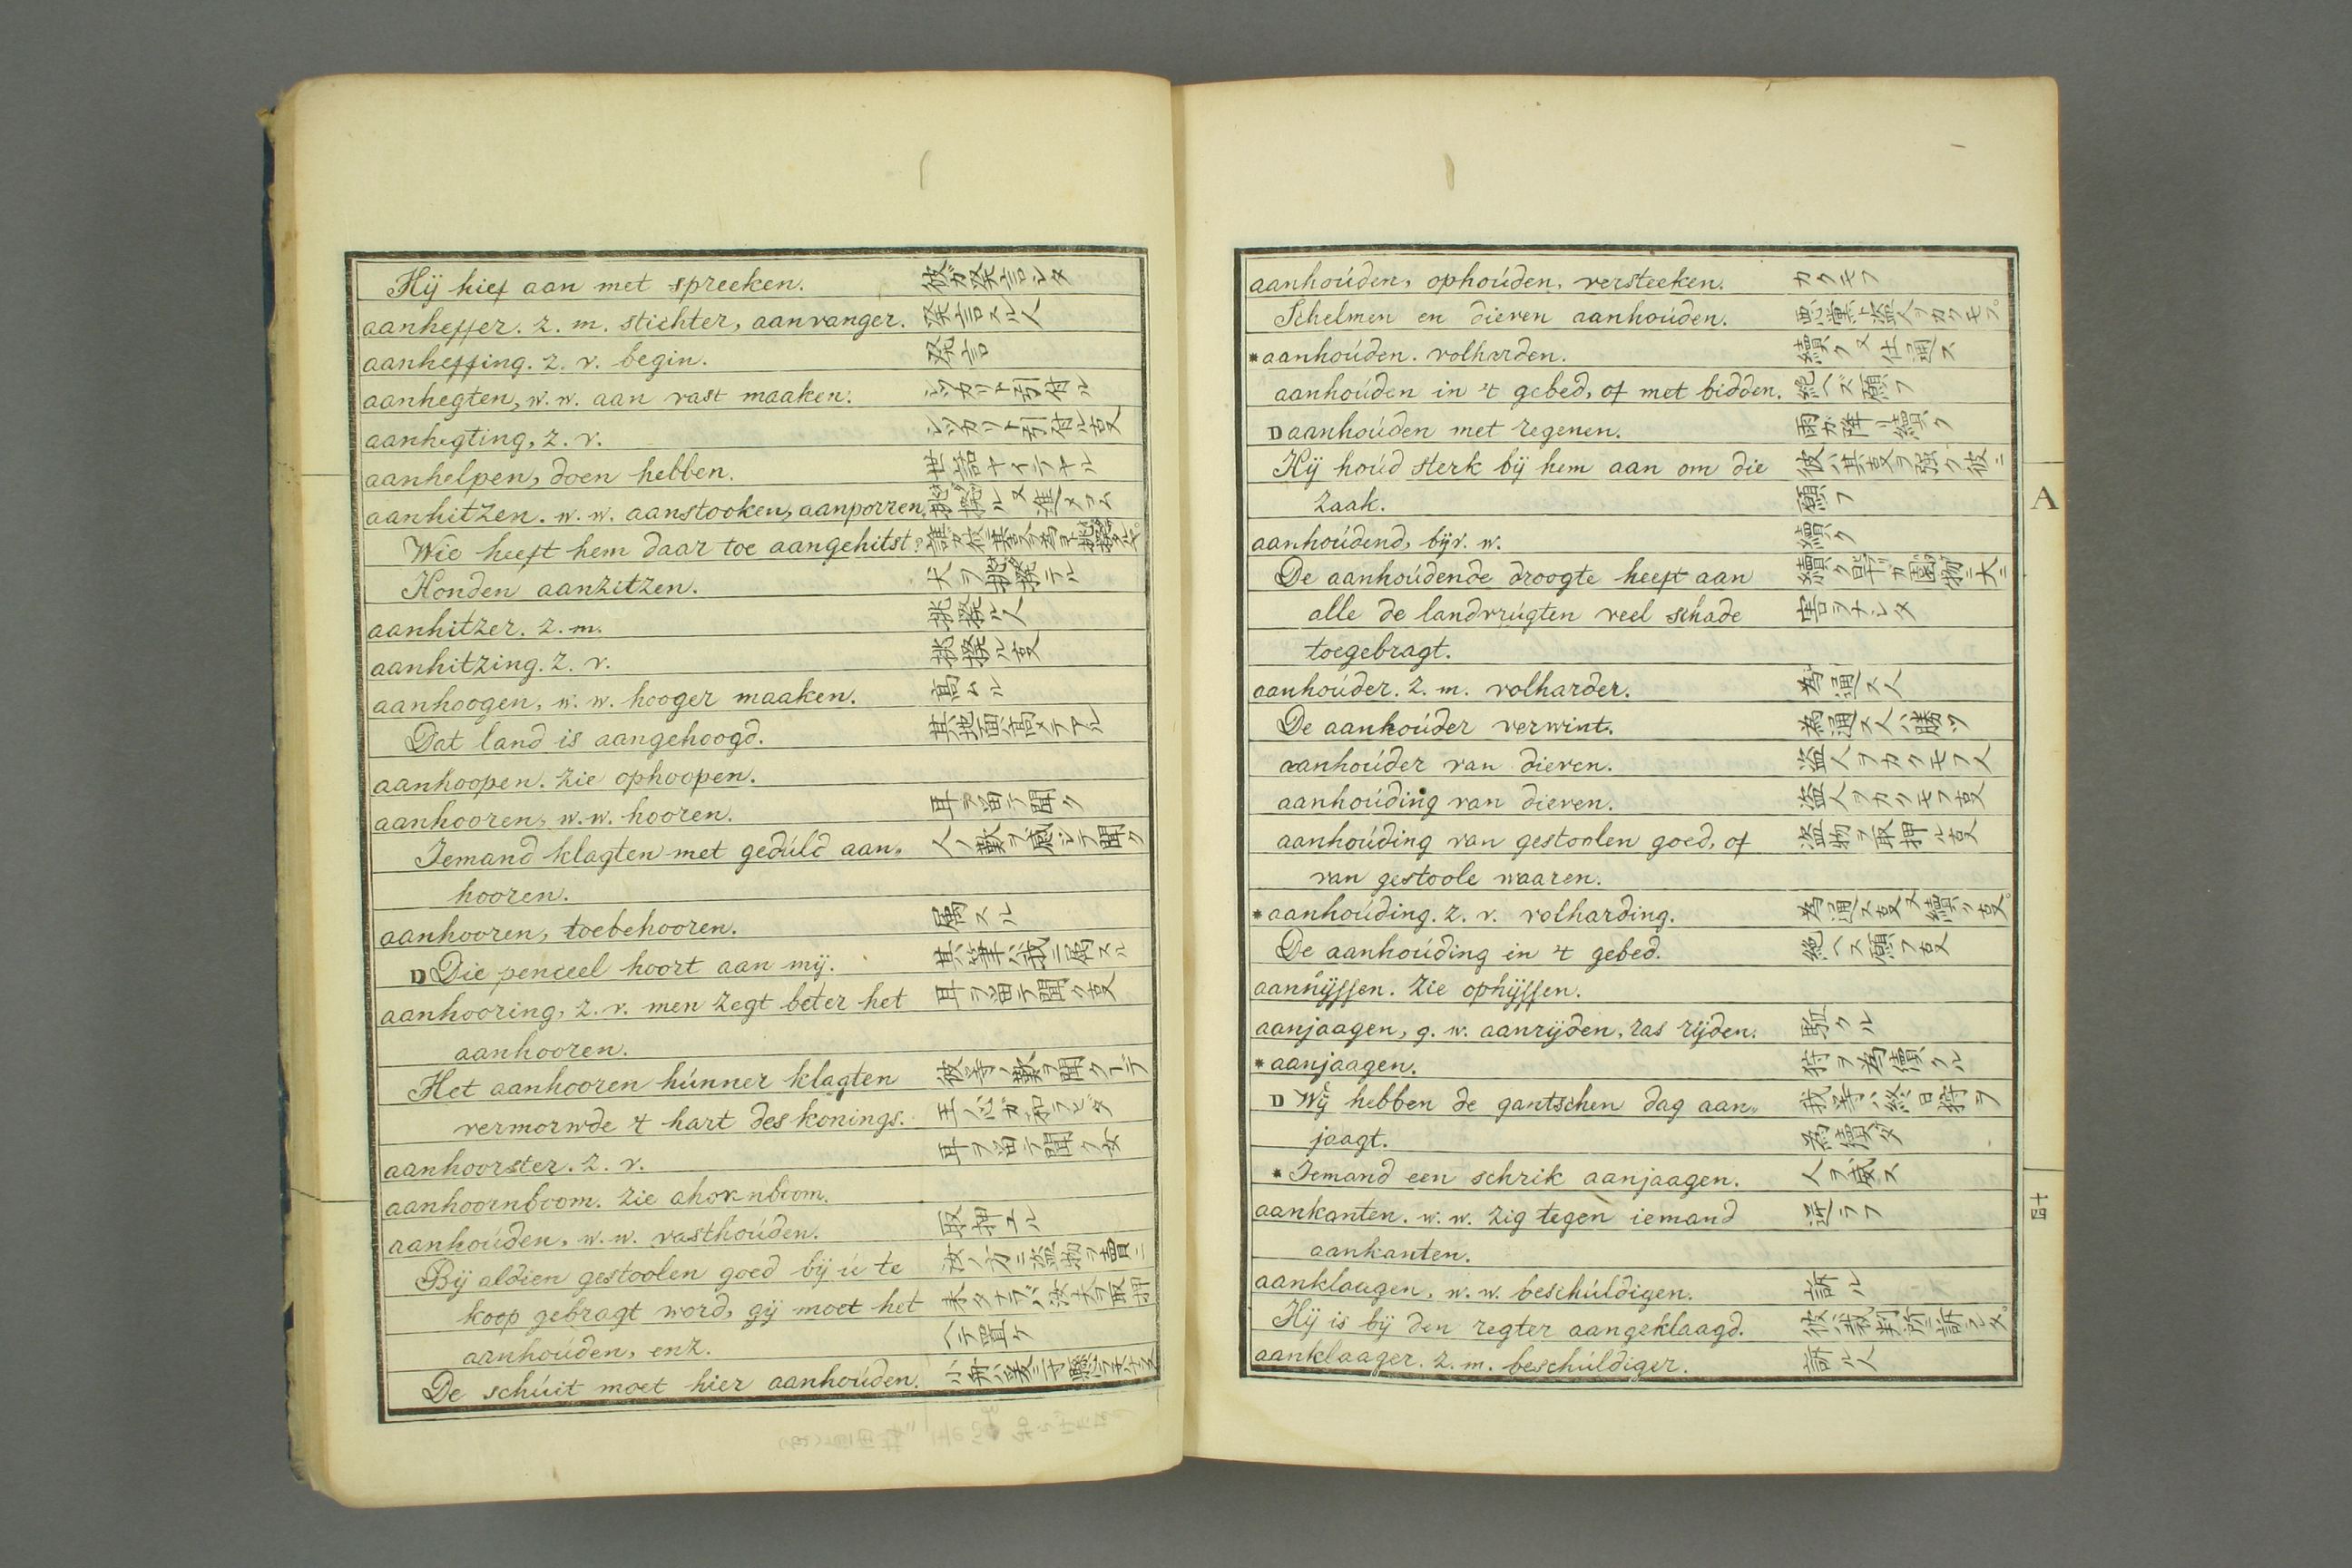 Hij hief aan met spreeken. 彼ガ発言シタ
aanheffer. z. m. stichter, aanvanger. 発言スル人
aanheffing. z. v. begin. 発言
aanhegten, w. w. aan vast maaken. シツカリト引付ル
aanhegting, z. v. シツカリト引付ル叓
aanhelpen, doen hebben. 世話ヤイテヤル
aanhitzen. w. w. aanstooken, aanporren. 挑撥ル又進メコム
Wie heeft hem daar toe aangehitst?
Honden aanzitzen. 犬ヲ挑撥テル
aanhitzer. z. m. 挑撥ル人
aanhitzing. z. v. 挑撥ル叓
aanhoogen, w. w. hooger maaken. 高ムル
Dat land is aangehoogd. 其地面ハ高メテアル
aanhoopen. zie ophoopen.
aanhooren, w. w. hooren. 耳ヲ留テ聞ク
Iemand klagten met gedúld aan„ 人ノ歎ヲ感シテ聞ク
hooren.
aanhooren, toebehooren. 属スル
D Die penceel hoort aan mij. 其筆ハ我ニ属スル
aanhooring, z. v. men zegt beter het 耳ヲ留テ聞ク叓
aanhooren.
Het aanhooren húnner klagten 彼等ノ歎ヲ聞クーデ
vermorwde 't hart des konings. 王ノ心ガ和ラビタ
aanhoorster. z. v. 耳ヲ留テ聞ク女
aanhoornboom. zie ahornboom.
aanhoúden, w. w. vasthoúden. 取押エル
Bij aldien gestoolen goed bij ú te 汝ノ方ニ盗物ヲ賣ニ
koop gebragt word, gij moet het 来タナラバ汝夫ヲ取押
aanhoúden, enz. ヘテ置ケ
De schúit moet hier aanhoúden.
aanhoúden, ophoúden, versteeken. カクモフ
Schelmen en dieven aanhoúden. 悪黨ト盗人ヲカクモフ。
*aanhoúden. volharden. 續ク又仕通ス
aanhoúden in 't gebed, of met bidden. 絶ヘズ願フ
D aanhoúden met regenen. 雨ガ降リ續ク
Hij hoúd sterk bij hem aan om die 彼ハ其叓ヲ強ク彼ニ
zaak. 願フ
aanhoúdend, bijv. w. 續ク
De aanhoúdende droogte heeft aan 續ク旱ガ園物ニ大ニ
alle de landvrúgten veel schade 害ヲナシタ
toegebragt.
aanhoúder. z. m. volharder. 為通ス人
De aanhoúder verwint. 為通ス人ハ勝ツ
aanhoúder van dieven. 盗人ヲカクモフ人
aanhoúding van dieven. 盗人ヲカクモフ叓
aanhoúding van gestoolen goed, of 盗物ヲ取押ル叓
van gestoole waaren.
*aanhoúding. z. v. volharding. 為通ス叓又續ク叓。
De aanhoúding in 't gebed. 絶ヘス願フ叓
aanhijssen. zie ophijssen.
aanjaagen, g. w. aanrijden, ras rijden. 駈クル
*aanjaagen. 狩ヲ為續クル
D Wij hebben de gantschen dag aan„ 我等ハ終日狩ヲ
jaagt. 為續ケタ
*Iemand een schrik aanjaagen. 人ヲ威ス
aankanten. w. w. zig tegen iemand 逆ラフ
aankanten.
aanklaagen, w. w. beschúldigen. 訴ル
Hij is bij den regter aangeklaagd. 彼ハ裁判所ニ訴ラレタ。
aanklaager. z. m. beschúldiger. 訴ル人
A
四十